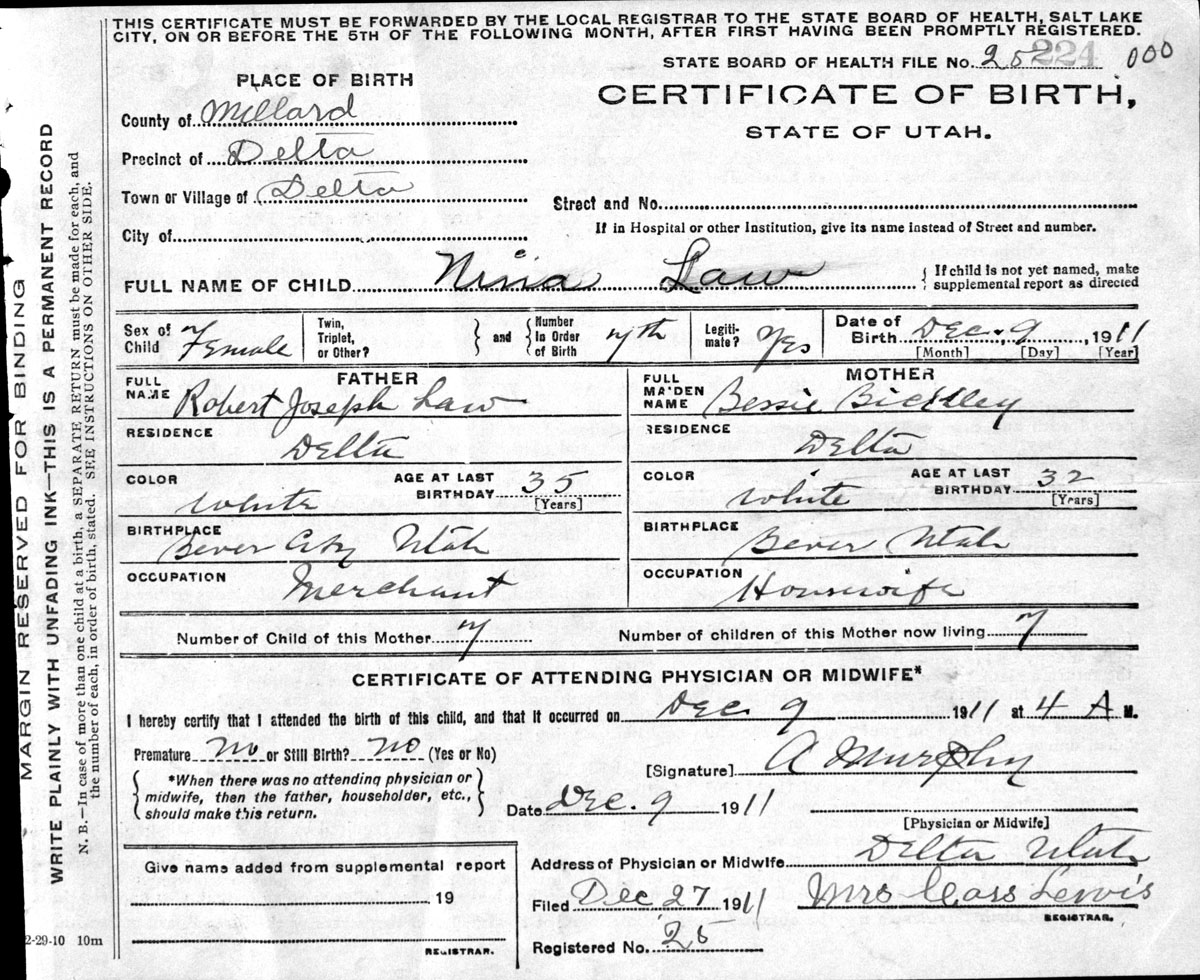 THIS CERTIFICATE MUST BE FORWARDED BY THE LOCAL REGISTRAR TO THE STATE BOARD OF HEALTH, SALT LAKE
CITY, ON OR BEFORE THE 5TH OF THE FOLLOWING MONTH, AFTER FIRST HAVING BEEN PROMPTLY REGISTERED.
STATE BOARD OF HEALTH FILE No. 25 224 000
PLACE OF BIRTH
CERTIFICATE OF BIRTH,
STATE OF UTAH.
County of Millard
Precinct of Delta
Town or Village of Delta
Street and No.
City of
If in Hospital or other Institution, give its name instead of Street and number.
FULL NAME OF CHILD Nina Law { If child is not yet named, make
supplemental report as directed
Sex of Child Female
Twin, Triplet, or Other? } and { Number In Order of Birth 7th
Legitimate? Yes
Date of Birth Dec. 9, 1911
[Month] [Day] [Year]
FATHER
FULL NAME Robert Joseph Law
RESIDENCE Delta
COLOR White AGE AT LAST BIRTHDAY 35 [Years]
BIRTHPLACE Bever City Utah
OCCUPATION Merchant
MOTHER
FULL MAIDEN NAME Bessie Bickley
RESIDENCE Delta
COLOR White AGE AT LAST BIRTHDAY 32 [Years]
BIRTHPLACE Bever Utah
OCCUPATION Housewife
Number of Child of this Mother 7 Number of children of this Mother now living 7
CERTIFICATE OF ATTENDING PHYSICIAN OR MIDWIFE*
I hereby certify that I attended the birth of this child, and that it occurred on Dec 9 1911 at 4 A M.
Premature no or Still Birth? no (Yes or No)
[Signature] A Murphy
*When there was no attending physician or
midwife, then the father, householder, etc.,
should make this return.
Date Dec. 9 1911
[Physician or Midwife]
Address of Physician or Midwife Delta Utah
Filed Dec 27 1911 Mrs Cass Lewis
REGISTRAR.
Registered No. 25
Give name added from supplemental report
19
REGISTRAR.
2-29-10 10m
MARGIN RESERVED FOR BINDING
WRITE PLAINLY WITH UNFADING INK—THIS IS A PERMANENT RECORD
N. B.—In case of more than one child at a birth, a SEPARATE RETURN must be made for each, and
the number of each, in order of birth, stated. SEE INSTRUCTIONS ON OTHER SIDE.